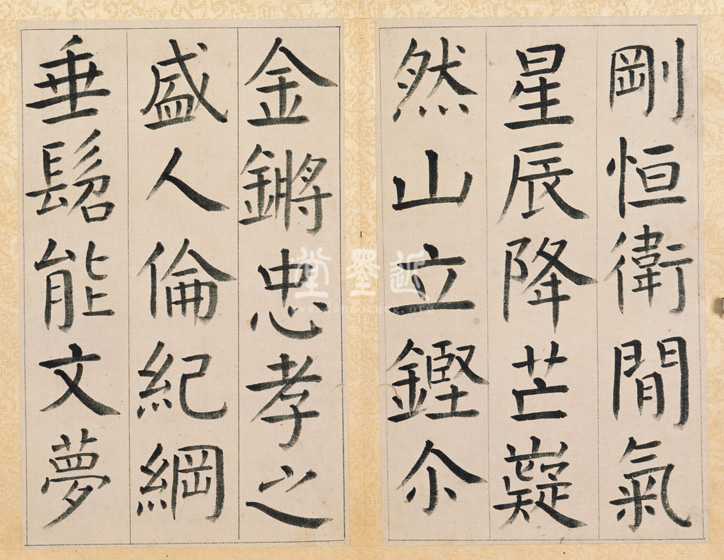 剛恒衛閒氣
星辰降芒嶷
然山立鏗尒
金鏘忠孝之
盛人倫紀綱
垂髫能文夢
近墨堂